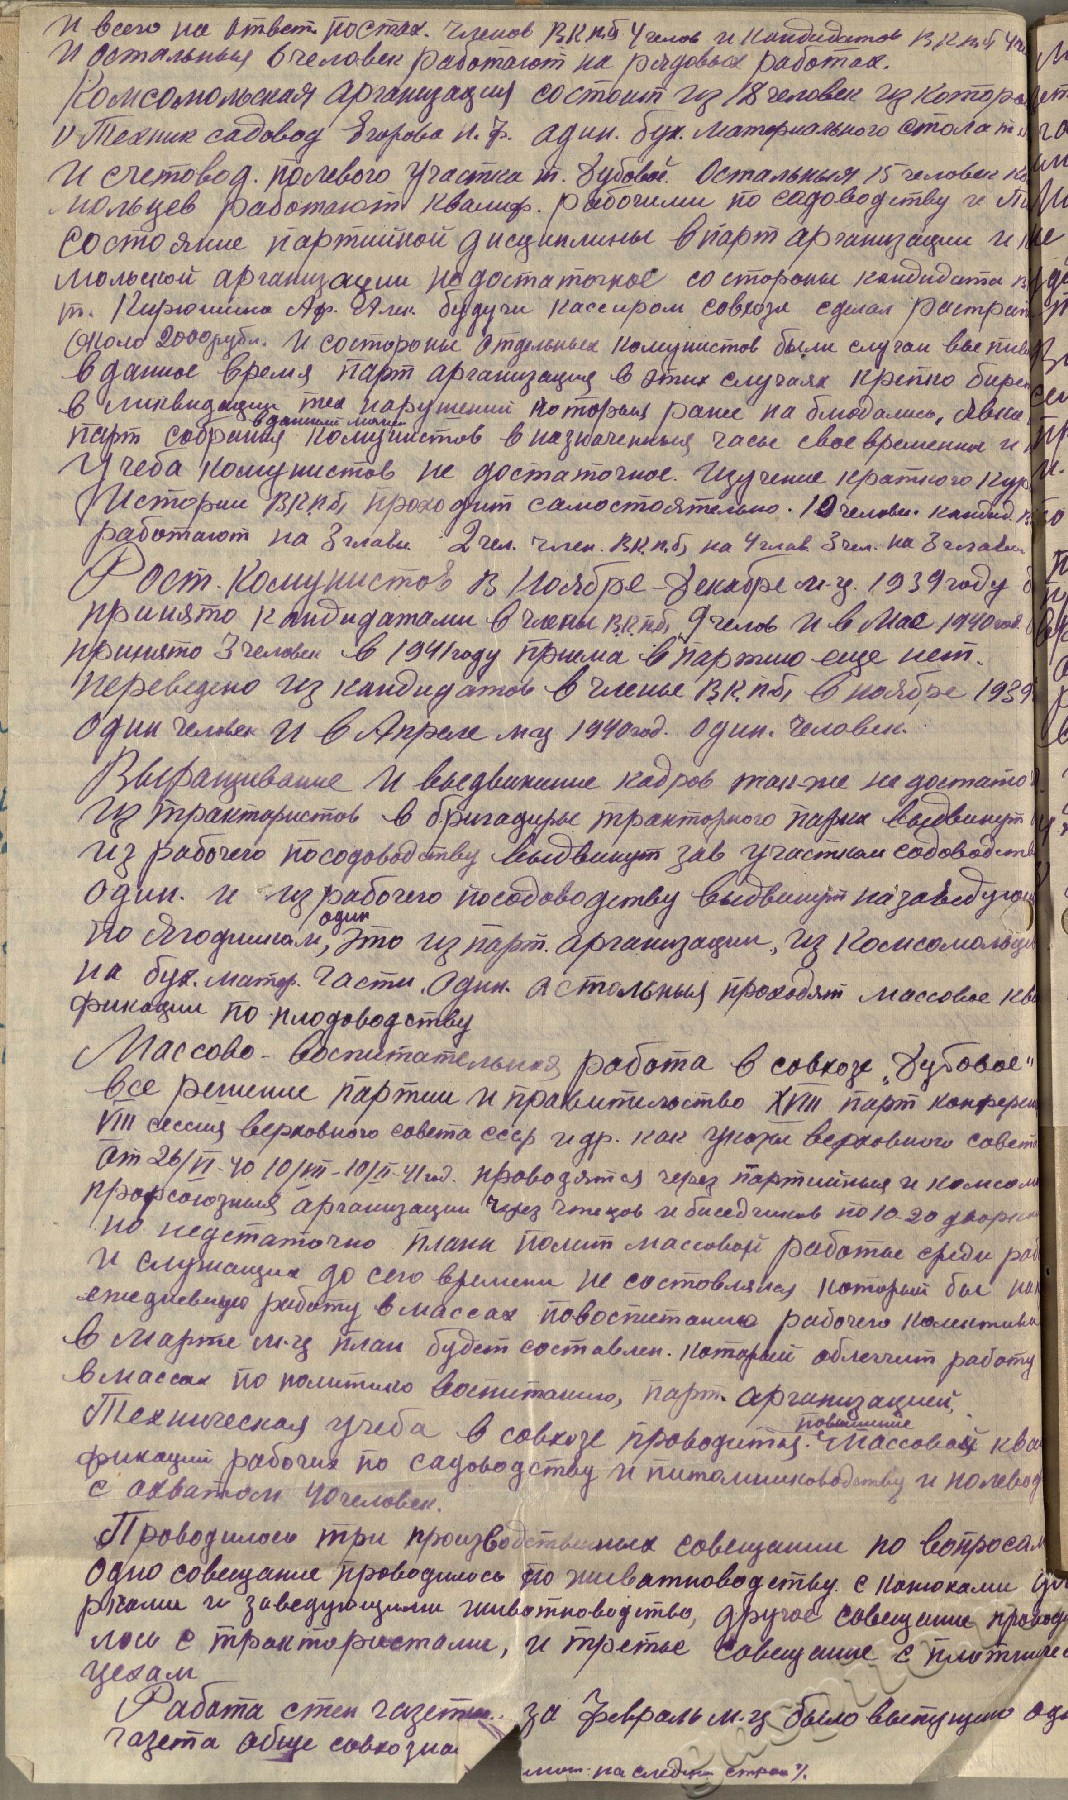 и всего на ответ. постах. членов В.К.п.б 4 челов и кандидатов В.К.п.б 4 че
и остальныя 6 человек работают на рядовых работах.
Комсомольская арганизация состоит из 18 человек из котор
Техник садовод Егорова п. ф. один. бух. материального стола т.
и счетовод. полевого участка т. Дубовой. Остальныя 15 человек ко
мольцев работают квалиф. рабочими по садоводству и
состояние партийной дисциплины в парт арганизации и
мольской арганизации недостаточное со стороны кандидата
т. Кирюшина Аф. Алек. будучи кассиром совхоза сделал растрат
около 2000 рубл. и состороны отдельных комунистов были случаи выпив
в данное время парт арганизация в этих случаях крепко бирет
в ликвидации тех нарушений которыя ранее на блюдались, явка
в данный момент
парт собрания комунистов в назначенныя часы своевременна и
Учеба комунистов не достаточное. изучение краткого кур
Истории В.К.П.б, проходит самостоятельно. 10 челове. кандид.
работают на 3 главы 2 чел. член. В.К.п.б, на 4 глав. 3 чел. на 3 главы
Рост. комунистов в Ноябре-Декабре м-ц. 1939 году
принято кандидатами в члены В.К.п.б, 9 челов и в Мае 1940 год
принято 3 человек в 1941 году приема в партию еще нет.
переведено из кандидатов в члены В.К.п.б, в ноябре 1939
один человек и в Апреле м-ц 1940 год. один. человек.
Выращивание и выдвижение кадров так-же не достато
из трактористов в бригадиры тракторного парка выдвинут
из рабочего посадоводству выдвинут зав участком садоводств
один. и из рабочего посадоводству выдвинут на заведующ
один
по Ягодникам, это из парт. арганизации, из комсомольце
на бух. матер. части. один. астольныя проходят массовое ква
фикации по плодоводству
Массово-воспитательная работа в совхозе „Дубовое"
все решение партии и правительство XVIII парт конферен
VIII сессия верховного совета ссср и др. как указы верховного совет
от 26/VI-40 10/VII-10/II-41 год. проводятся через партийныя и комсом
профсоюзныя арганизации через чтецов и беседчиков по 10-20 дворк
но недстаточно плана полит массовой работы среди раб
и служащих до сего времени не состовлялся который бы
ежедневную работу в массах повоспитанию рабочего колектива
в Марте м-ц план будет составлен. который облегчит работу
в массах по политико воспитанию, парт. арганизацией,
повышение
Техническая учеба в совхозе проводится. Массовой ква
фикаций рабочих по садоводству и питомниководству и полевод
с охватом 40 человек.
Проводилось три производственных совещании по вопросам
одно совещание проводилось по животноводству. с конюхами
рками и заведующими животноводство, другое совещание провод
лось с трактористами, и третье совещание с плотниче
цехам
Работа стен газеты. за февраль м-ц было выпущено од
газета обще совхозна
на следую стран%